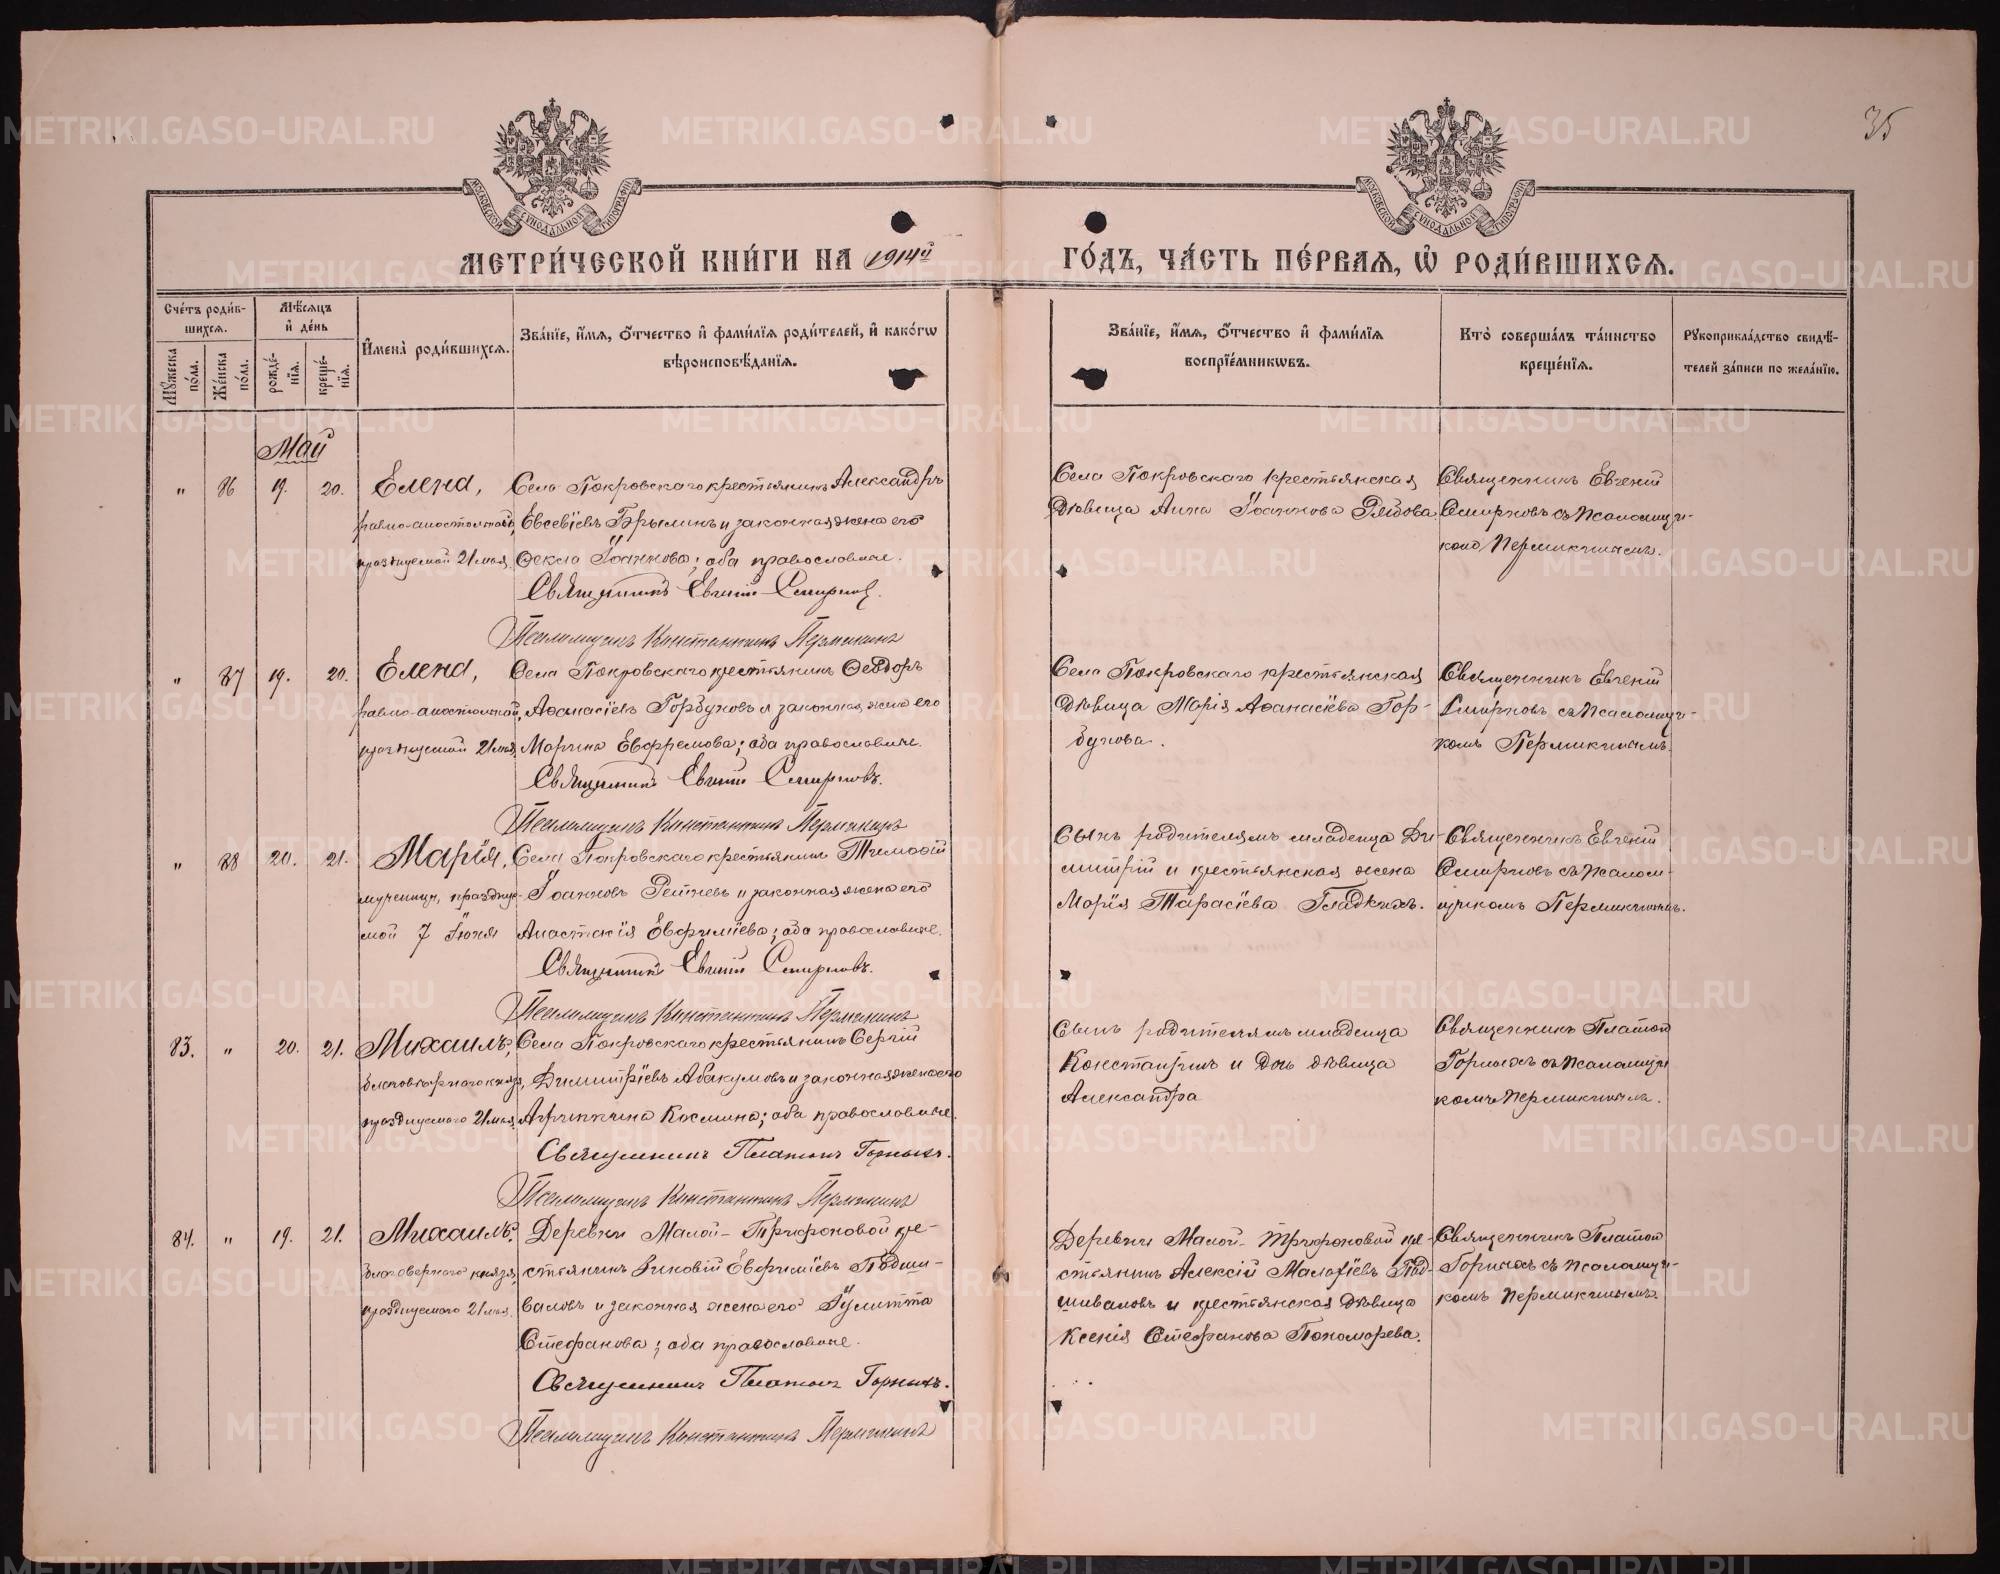 35
МОСКОВСКОЙ СѴНОДАЛЬНОЙ ТИПОГРАФІИ
МОСКОВСКОЙ СѴНОДАЛЬНОЙ ТИПОГРАФІИ
МЕТРИ́ЧЕСКОЙ КНИ́ГИ НА 1914й ГО́ДЪ, ЧА́СТЬ ПЕ́РВАѦ, Ѡ҆ РОДИ́ВШИХСѦ.
Сче́тъ роди́в-
шихсѧ.
Мꙋ́жеска по́ла.
Же́нска по́ла.
Мѣ́сѧцъ и҆ де́нь
рожде́-
нїѧ.
креще́-
нїѧ.
И҆мена̀ роди́вшихсѧ.
Зва́нїе, и҆́мѧ, ѻ҆́тчество и҆ фами́лїѧ роди́телей, и҆ како́гѡ
вѣроисповѣ́данїѧ.
Зва́нїе, и҆́мѧ, ѻ҆́тчество и҆ фами́лїѧ
воспрїе́мникѡвъ.
Кто̀ соверша́лъ та́инство
креще́нїѧ.
Рꙋкоприкла́дство свидѣ́-
телей за́писи по жела́нїю.
Май
" 86 19. 20. Елена,
равно-апостольной,
празднуемой 21 мая.
Села Покровскаго крестьянинъ Александръ
Евсевіевъ Брылинъ и законная жена его
Ѳекла Іоаннова; оба православные.
Священникъ Евгеній Смирновъ.
Псаломщикъ Константинъ Пермякинъ
Села Покровскаго крестьянская
дѣвица Анна Іоаннова Рябова
Священникъ Евгеній
Смирновъ съ псаломщи-
комъ Пермикинымъ.
" 87 19. 20. Елена,
равно-апостольной,
празднуемой 21 мая.
Села Покровскаго крестьянинъ Ѳеодоръ
Аѳанасіевъ Горбуновъ и законная жена его
Марина Евфремова; оба православные.
Священникъ Евгеній Смирновъ.
Псаломщикъ Константинъ Пермякинъ
Села Покровскаго крестьянская
дѣвица Марія Аѳанасіева Гор-
бунова.
Священникъ Евгеній
Смирновъ съ псаломщи-
комъ Пермикинымъ.
" 88 20. 21. Марія,
мученицы, праздную-
мой 7 Іюня
Села Покровскаго крестьянинъ Тимоѳей
Іоанновъ и законная жена его
Анастасія Евфиміева; оба православные.
Священникъ Евгеній Смирновъ.
Псаломщикъ Константинъ Пермякинъ
Сынъ родителямъ младенца Ди-
митрій и крестьянская жена
Марія Тарасіева Гладкихъ.
Священникъ Евгеній
Смирновъ съ псалом-
щикомъ Пермикинымъ.
83. " 20. 21. Михаилъ,
благовѣрнаго князя,
празднуемого 21 мая.
Села Покровскаго крестьянинъ Сергій
Димитріевъ Абакумовъ и законная жена его
Агриппина Космина; оба православные.
Священникъ Платонъ Горныхъ.
Псаломщикъ Константинъ Пермякинъ
Сынъ родителямъ младенца
Константинъ и дочь дѣвица
Александра
Священникъ Платон
Горныхъ съ псаломщи
комъ Пермикинымъ.
84. " 19. 21. Михаилъ,
благоверного князя,
празднуемого 21 мая.
Деревни Малой-Трифоновой кре-
стьянинъ Зиновій Евфиміевъ Подши-
валовъ и законная жена его Іулитта
Стефанова; оба православные.
Священникъ Платонъ Горныхъ.
Псаломщикъ Константинъ Пермякинъ
Деревни Малой-Трифоновой кре-
стьянинъ Алексій Малахіевъ Под-
шиваловъ и крестьянская дѣвица
Ксенія Стефанова Пономарева.
Священникъ Платон
Горныхъ съ псаломщи-
комъ Пермикинымъ.
METRIKI.GASO-URAL.RU